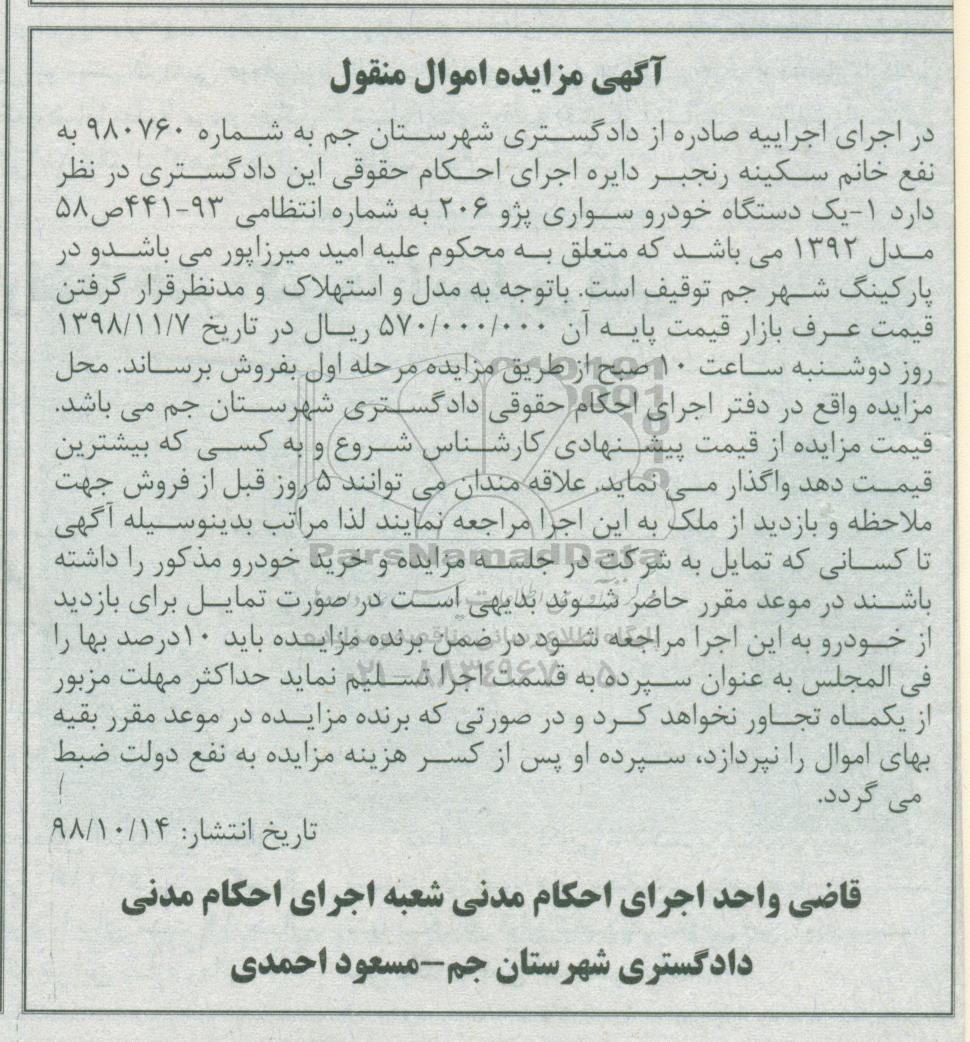 آگهی مزایده اموال منقول
در اجرای اجراییه صادره از دادگستری شهرستان جم به شماره ۹۸۰۷۶۰ به
نفع خانم سکینه رنجبر دایره اجرای احکام حقوقی این دادگستری در نظر
دارد ۱-یک دستگاه خودرو سواری پژو ۲۰۶ به شماره انتظامی ۹۳-۴۴۱ص۵۸
مدل ۱۳۹۲ می باشد که متعلق به محکوم علیه امید میرزاپور می باشدو در
پارکینگ شهر جم توقیف است. باتوجه به مدل و استهلاک و مدنظرقرار گرفتن
قیمت عرف بازار قیمت پایه آن ۵۷۰/۰۰۰/۰۰۰ ریال در تاریخ ۱۳۹۸/۱۱/۷
روز دوشنبه ساعت ۱۰ صبح از طریق مزایده مرحله اول بفروش برساند. محل
مزایده واقع در دفتر اجرای احکام حقوقی دادگستری شهرستان جم می باشد.
قیمت مزایده از قیمت پیشنهادی کارشناس شروع و به کسی که بیشترین
قیمت دهد واگذار می نماید. علاقه مندان می توانند ۵ روز قبل از فروش جهت
ملاحظه و بازدید از ملک به این اجرا مراجعه نمایند لذا مراتب بدینوسیله آگهی
تا کسانی که تمایل به شرکت در جلسه مزایده و خرید خودرو مذکور را داشته
باشند در موعد مقرر حاضر شوند بدیهی است در صورت تمایل برای بازدید
از خودرو به این اجرا مراجعه شود در ضمن برنده مزایده باید ۱۰درصد بها را
فی المجلس به عنوان سپرده به قسمت اجرا تسلیم نماید حداکثر مهلت مزبور
از یکماه تجاور نخواهد کرد و در صورتی که برنده مزایده در موعد مقرر بقیه
بهای اموال را نپردازد، سپرده او پس از کسر هزینه مزایده به نفع دولت ضبط
می گردد.
تاریخ انتشار: ۹۸/۱۰/۱۴
قاضی واحد اجرای احکام مدنی شعبه اجرای احکام مدنی
دادگستری شهرستان جم-مسعود احمدی
ParsNamadData
۰۲۱-۸۸۳۴۹۶۷۰-۵